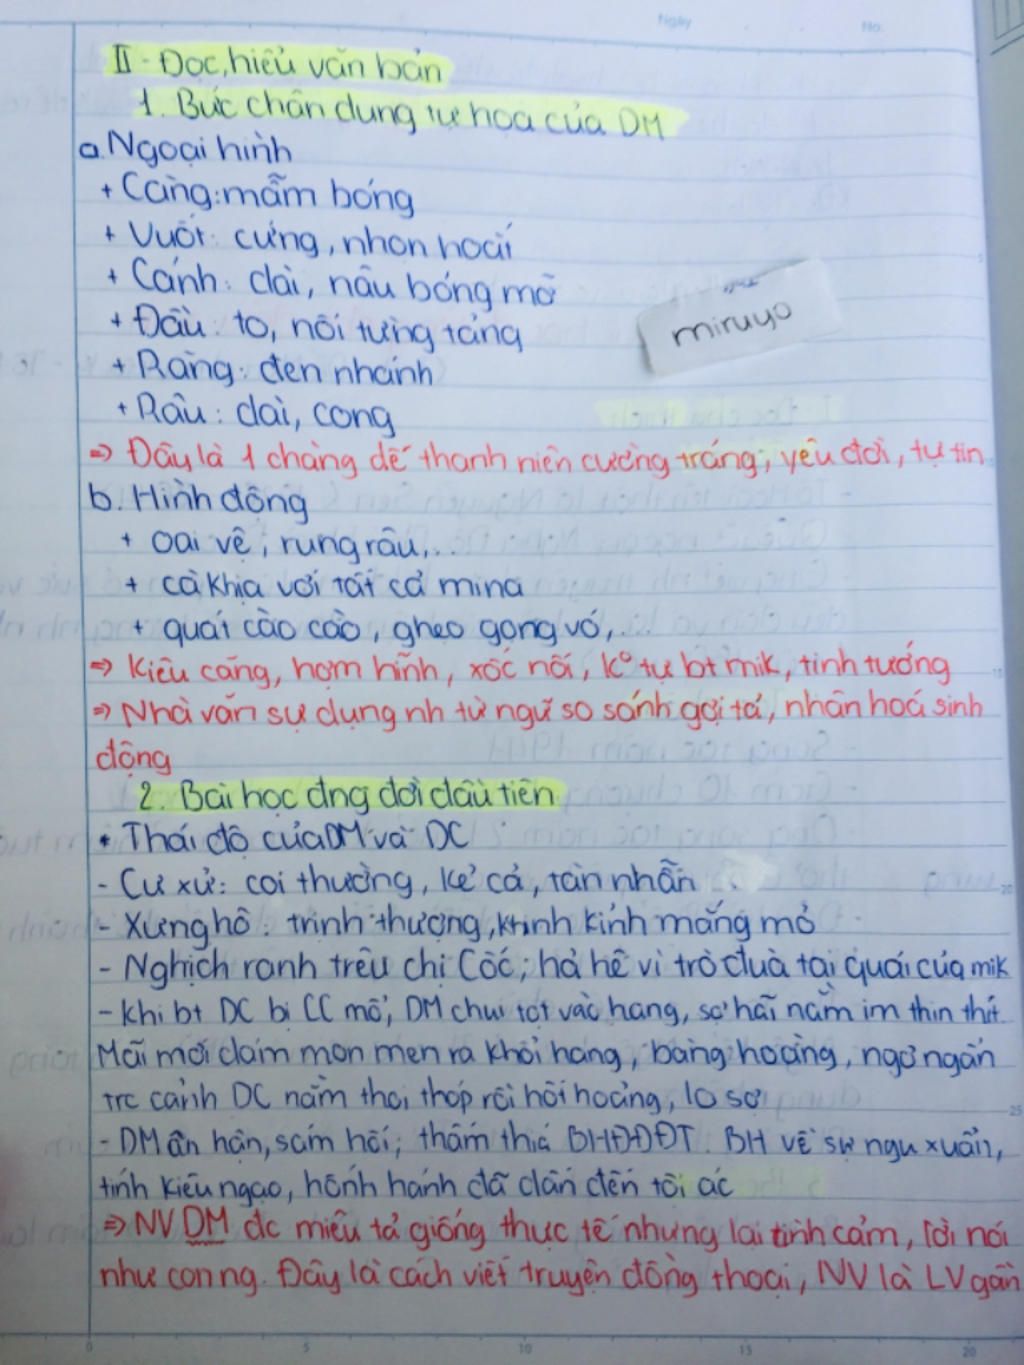 Ngày
No.
II - Đọc, hiểu văn bản
1. Bức chân dung tự họa của DM
a. Ngoại hình
+ Càng: mẫm bóng
+ Vuốt: cứng, nhọn hoắt
+ Cánh: dài, nâu bóng mỡ
+ Đầu: to, nổi từng tảng
miruyo
+ Răng: đen nhánh
+ Râu: dài, cong
=> Đây là 1 chàng dế thanh niên cường tráng, yêu đời, tự tin
b. Hình động
+ oai vệ, rung râu,..
+ cà khịa với tất cả mina
+ quát cào cào, ghẹo gọng vó,..
=> Kiêu căng, hợm hĩnh, xốc nổi, k° tự bt mik, tinh tướng
=> Nhà văn sự dụng nh từ ngữ so sánh gợi tả, nhân hoá sinh
động
2. Bài học đng đời đầu tiên
* Thái độ của DM và DC
- Cư xử: coi thường, kẻ cả, tàn nhẫn
- Xưng hô: trịnh thượng, khinh kỉnh mắng mỏ
- Nghịch ranh trêu chị Cốc; hả hê vì trò đuà tai quái của mik
- khi bt DC bị CC mổ, DM chui tọt vào hang, sợ hãi nằm im thin thít
Mãi mới dám mon men ra khỏi hang, bàng hoàng, ngơ ngẩn
trc cảnh DC nằm thoi thóp rồi hối hoảng, lo sợ
- DM ân hận, sám hối; thấm thiá BHĐĐĐT. BH về sự ngu xuẩn,
tính kiêu ngạo, hống hánh đã dẫn đến tội ác
=> NV DM đc miêu tả giống thực tế nhưng lại tình cảm, lời nói
như con ng. Đây là cách viết truyện đồng thoại, NV là LV gần
0 5 10 15 20